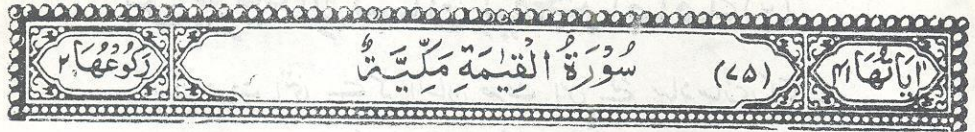 اٰيَاتُهَا ٤٠ (٧٥) سُوْرَةُ الْقِيٰمَةِ مَكِّيَّةٌ رُكُوْعُهَا ٢